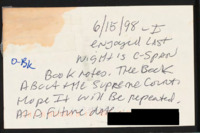 6/15/98 - I
enjoyed last
night's C-Span
O-BK
Book notes. The Book
About the Supreme Court.
Hope It will Be repeated.
At A future date